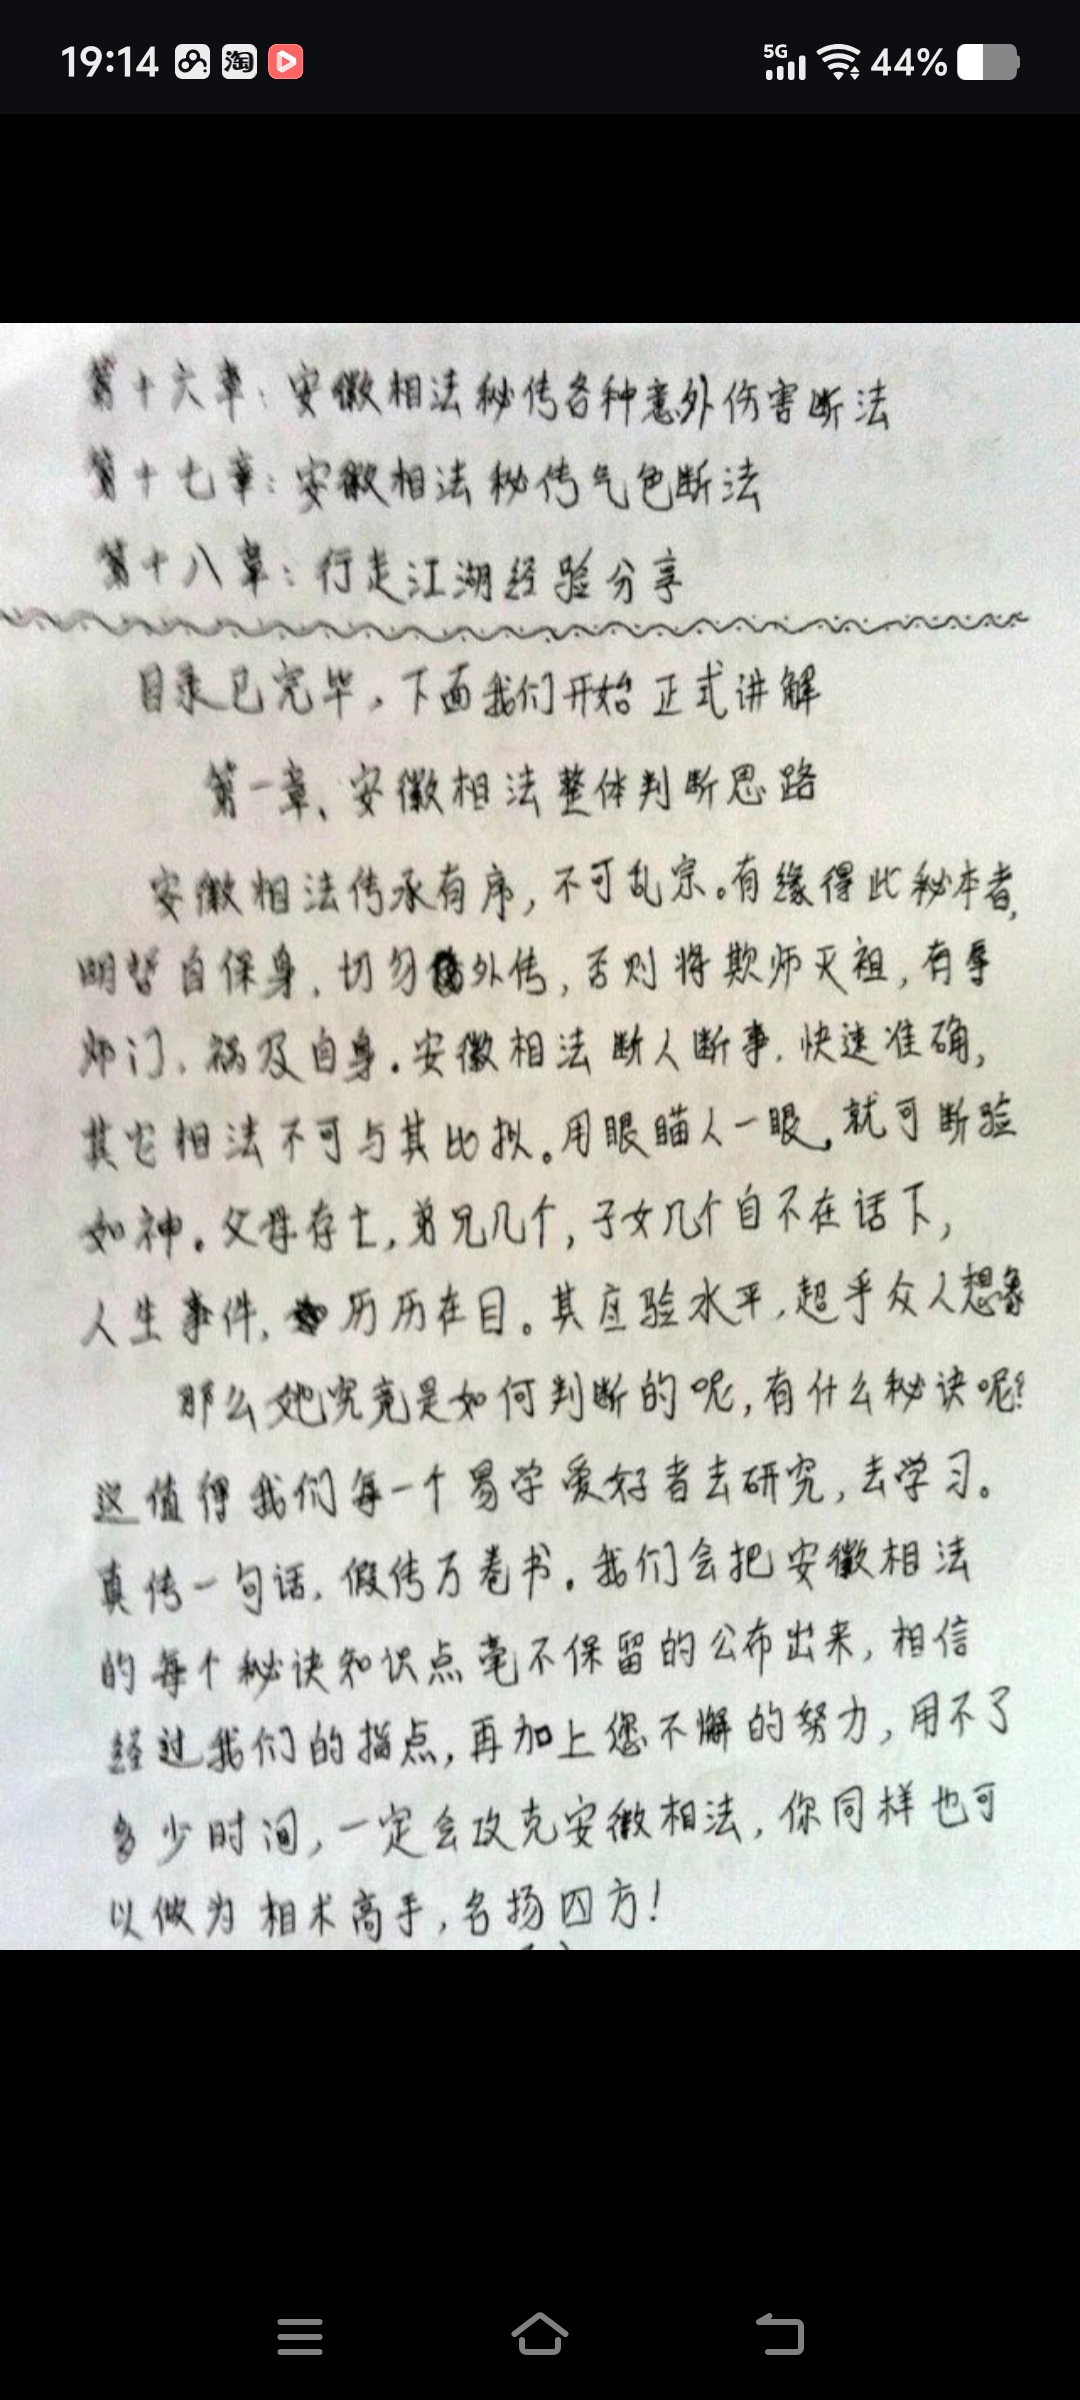 19:14 淘 5G 44%
第十六章：安徽相法秘传各种意外伤害断法
第十七章：安徽相法秘传气色断法
第十八章：行走江湖经验分享
目录已完毕，下面我们开始正式讲解
第一章、安徽相法整体判断思路
安徽相法传承有序，不可乱宗。有缘得此秘本者，
明哲自保身，切勿外传，否则将欺师灭祖，有辱
师门，祸及自身。安徽相法断人断事，快速准确，
其它相法不可与其比拟。用眼瞄人一眼，就可断验
如神。父母存亡，弟兄几个，子女几个自不在话下，
人生事件，历历在目。其应验水平，超乎众人想象
那么她究竟是如何判断的呢，有什么秘诀呢？
这值得我们每一个易学爱好者去研究，去学习。
真传一句话，假传万卷书。我们会把安徽相法
的每个秘诀知识点毫不保留的公布出来，相信
经过我们的指点，再加上您不懈的努力，用不了
多少时间，一定会攻克安徽相法，你同样也可
以做为相术高手，名扬四方！